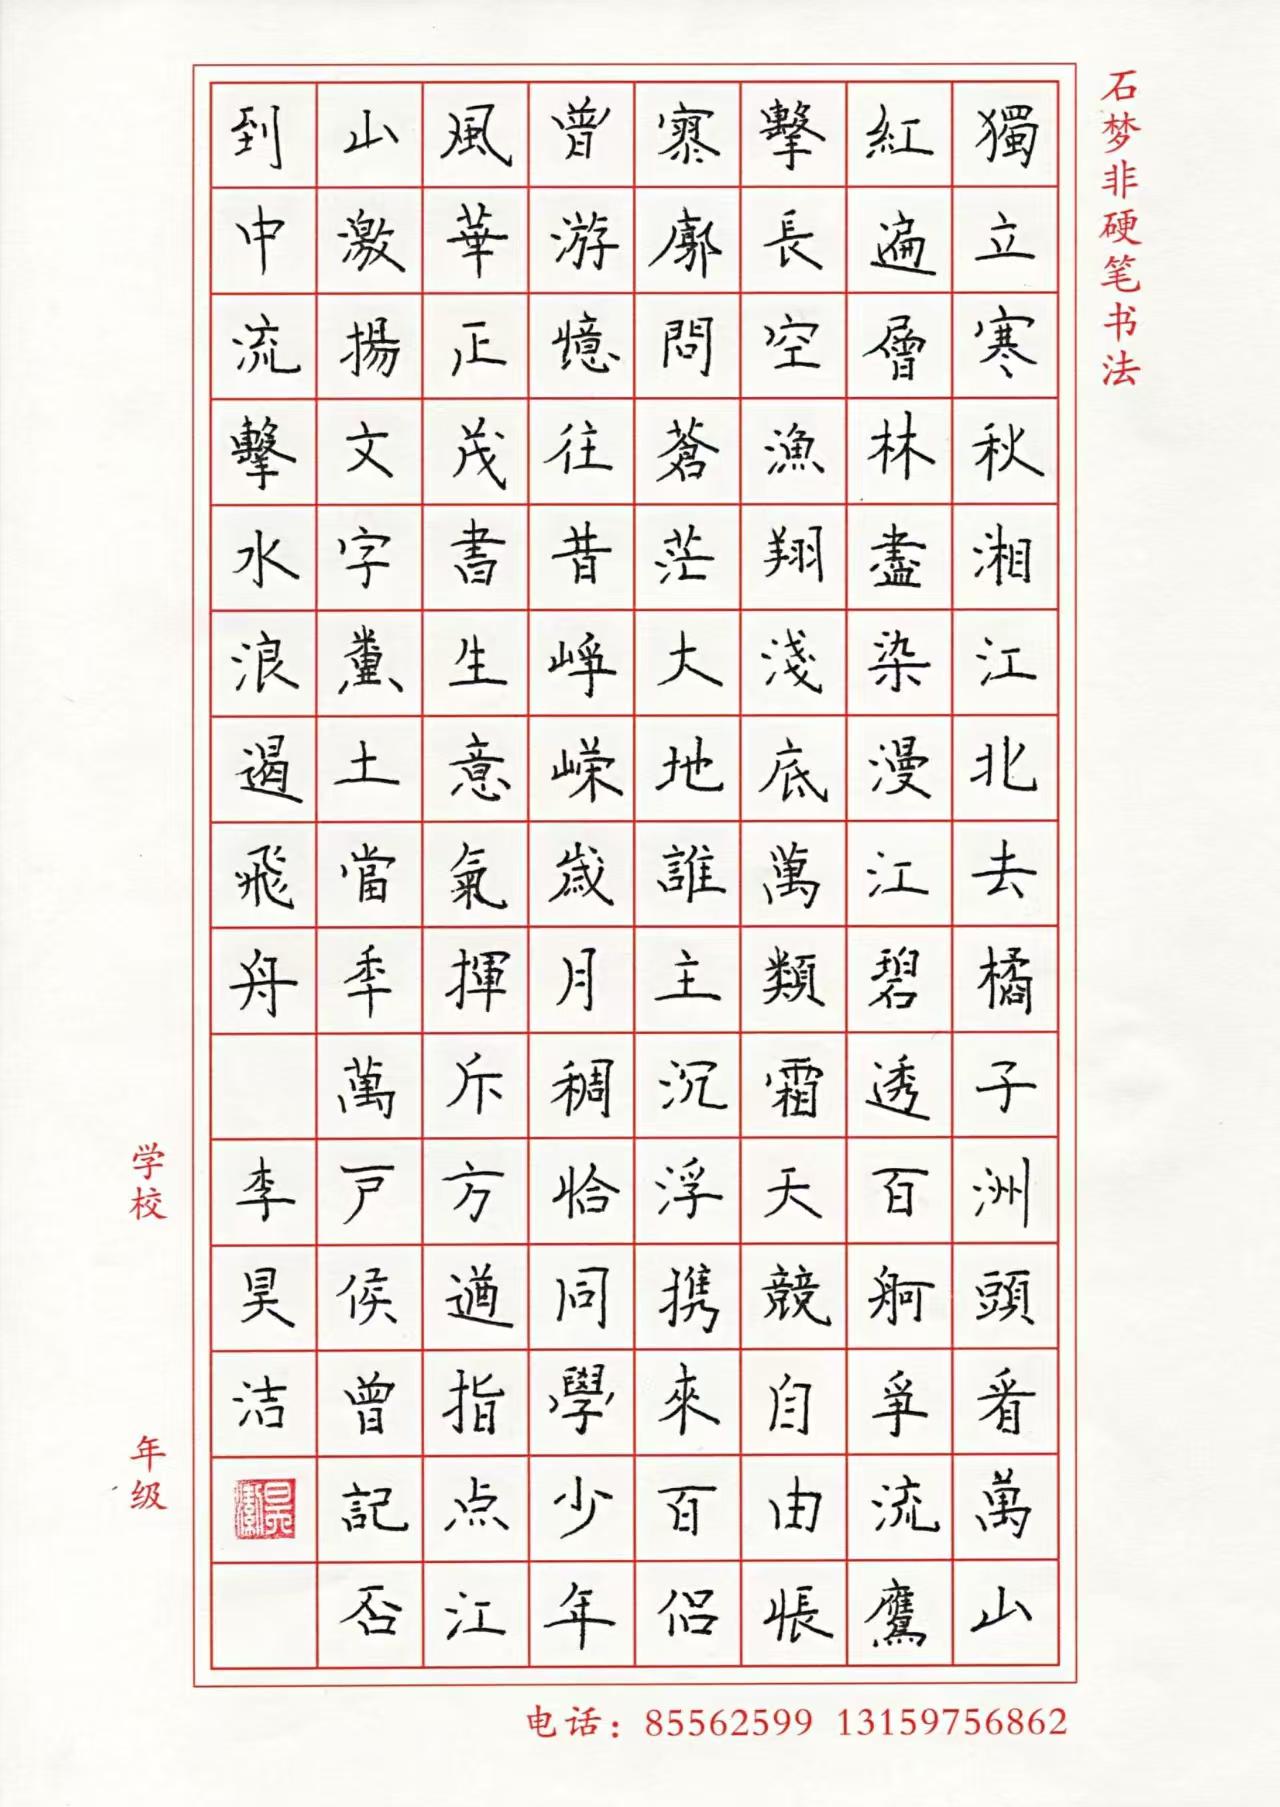 石梦非硬笔书法
獨立寒秋湘江北去橘子洲頭看萬山
紅遍層林盡染漫江碧透百舸爭流鷹
擊長空漁翔淺底萬類霜天競自由悵
寥廓問蒼茫大地誰主沉浮攜來百侣
曾游憶往昔崢嶸歲月稠恰同學少年
風華正茂書生意氣揮斥方遒指点江
山激揚文字糞土當年萬户侯曾記否
到中流擊水浪遏飛舟
李昊洁
昊潔
学校
年级
电话：85562599 13159756862